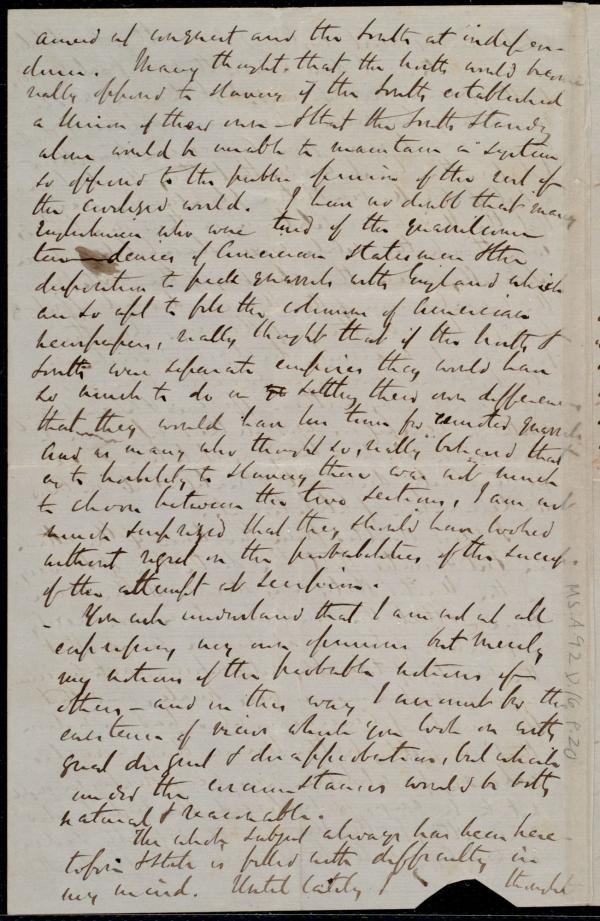 aimed at conquest and the South at indepen-
dence. Many thought that the North would become
really opposed to slavery if the South established
a Union of their own - & that the South standing
alone would be unable to maintain a system
so opposed to the public opinion of the rest of
the civilized world. I have no doubt that many
Englishmen who were tired of the quarrelsome
tendencies of American statesmen & the
disposition to pick quarrels with England which
are so apt to fill the columns of American
newspapers, really thought that if the North &
South were separate empires they would have
so much to do in settling their own differences
that they would have less time for remoter quarrels
And as many who thought so, really believed that
as to hostility to slavery there was not much
to choose between the two sections, I am not
much surprized that they should have looked
without regret on the probabilities of the success
of the attempt at secession.
- You will understand that I am not at all
expressing my own opinions but merely
my notions of the probable notions of
others - and in this way I account for the
existence of views which you look on with
great disgust & disapprobation, but which
under the circumstances would be both
natural & reasonable.
The whole subject always has been here-
tofore & still is filled with difficulty in
my mind. Until lately I thought
MS.A.9.2 v.16 p.20